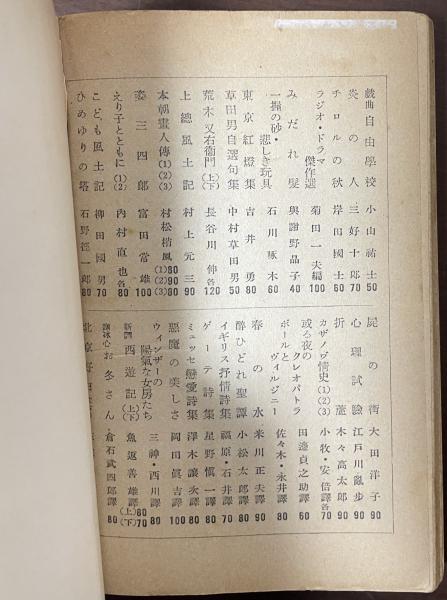 戯曲自由學校 小山祐士 50
炎の人 三好十郎 70
チロルの秋 岸田國士 60
ラジオ・ドラマ傑作選 菊田一夫編 100
みだれ髮 與謝野晶子 40
一握の砂・悲しき玩具 石川啄木 60
東京紅燈集 吉井勇 80
草田男自選句集 中村草田男 50
荒木又右衞門(上)(下) 長谷川伸 各120
上總風土記 村上元三 90
本朝畫人傳(1)(2)(3) 村松梢風 (1)80 (2)90 (3)80
姿三四郎 富田常雄 100
えり子とともに(1)(2) 內村直也 各80
こども風土記 柳田國男 70
ひめゆりの塔 石野徑一郎 80
屍の街 大田洋子 90
心理試驗 江戸川亂步 90
折蘆 木々高太郎 90
カザノヴ情史(1)(2)(3) 小牧・安倍譯 各70
或る夜のクレオパトラ 田邊貞之助譯 80
ポールとヴィルジニー 佐々木・永井譯 60
春の水 米川正夫譯 90
醉ひどれ聖譚 小松太郎譯 80
イギリス抒情詩集 福原・石井譯 70
ゲーテ詩集 星野愼一譯 80
ミュッセ戀愛詩集 澤木讓次譯 80
惡魔の美しさ 岡田眞吉譯 100
ウィンザーの陽氣な女房たち 三神・西川譯 80
新譯西遊記(上)(下) 魚返善雄譯 (上)80 (下)70
謝冰心お冬さん 倉石武四郎譯 80